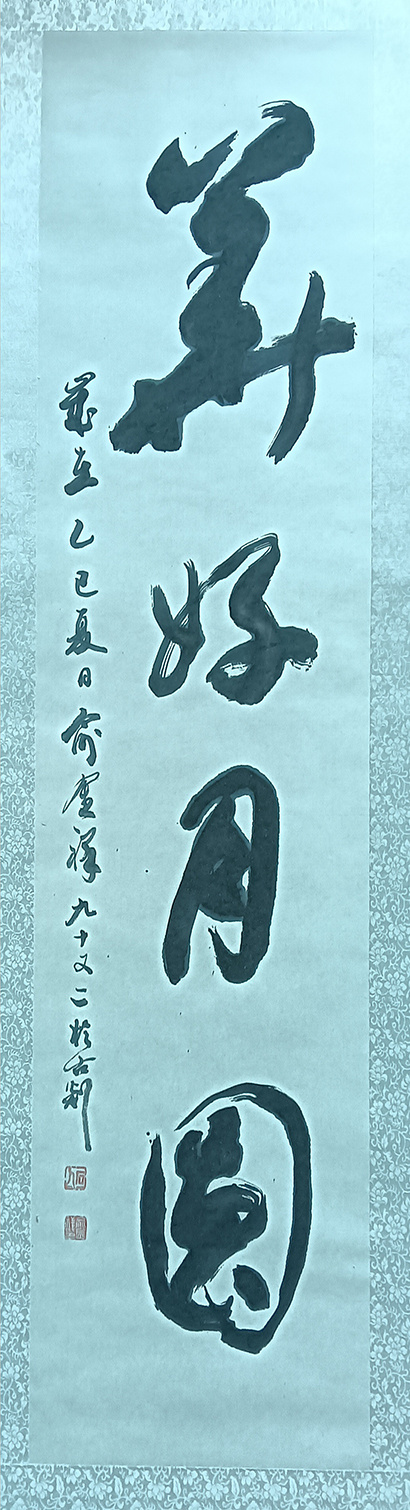 華好月圓
歲在乙巳夏日俞九十又二於古剡